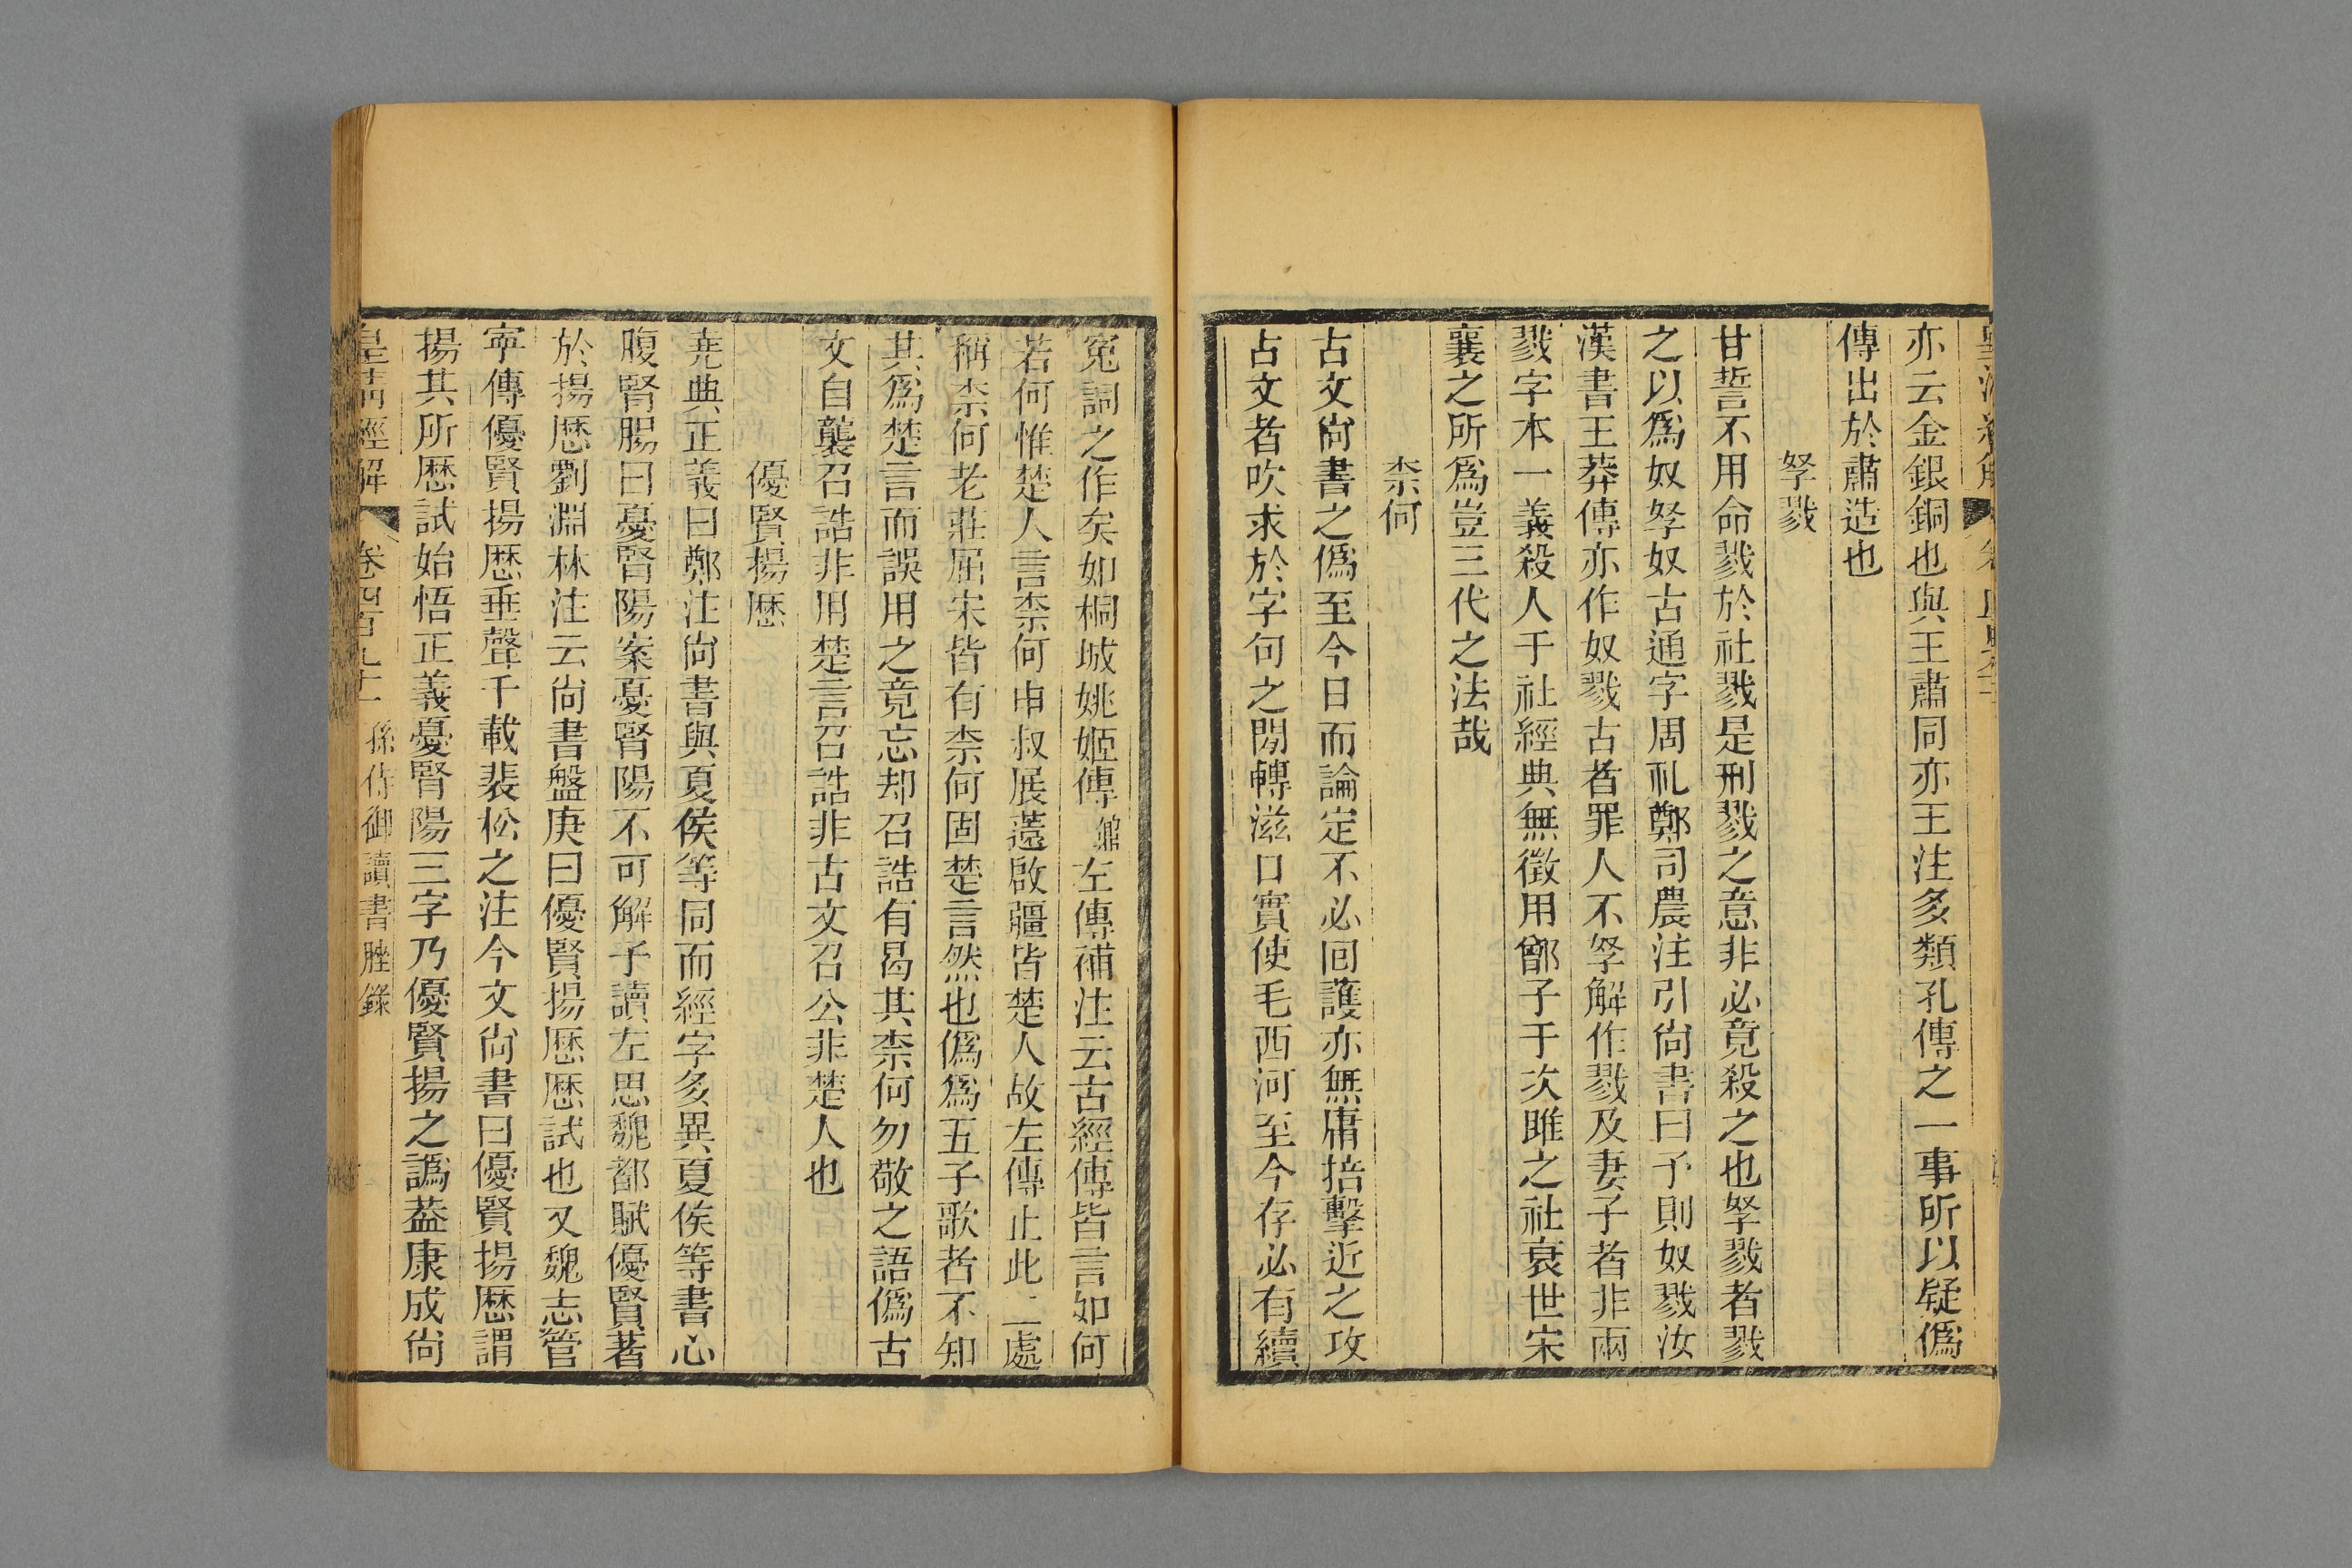 亦云金銀銅也與王肅同亦王注多類孔傳之一事所以疑僞
傳出於肅造也
孥戮
甘誓不用命戮於社戮是刑戮之意非必竟殺之也孥戮者戮
之以爲奴孥奴古通字周礼鄭司農注引尙書曰予則奴戮汝
漢書王莽傳亦作奴戮古者罪人不孥解作戮及妻子者非兩
戮字本一義殺人于社經典無徵用鄫子于次雎之社衰世宋
襄之所爲豈三代之法哉
柰何
古文尙書之僞至今日而論定不必回護亦無庸掊擊近之攻
古文者吹求於字句之閒轉滋口實使毛西河至今存必有續
冤詞之作矣如桐城姚姬傳鼐左傳補注云古經傳皆言如何
若何惟楚人言柰何申叔展薳啟疆皆楚人故左傳止此二處
稱柰何老莊屈宋皆有柰何固楚言然也僞爲五子歌者不知
其爲楚言而誤用之竟忘却召誥有曷其柰何勿敬之語僞古
文自襲召誥非用楚言召誥非古文召公非楚人也
優賢揚歷
堯典正義曰鄭注尙書與夏侯等同而經字多異夏侯等書心
腹腎腸曰憂腎陽案憂腎陽不可解予讀左思魏都賦優賢著
於揚歷劉淵林注云尙書盤庚曰優賢揚歷歷試也又魏志管
寧傳優賢揚歷垂聲千載裴松之注今文尙書曰優賢揚歷謂
揚其所歷試始悟正義憂腎陽三字乃優賢揚之譌葢康成尙
皇清經解 卷四百九十一 孫侍御讀書脞錄